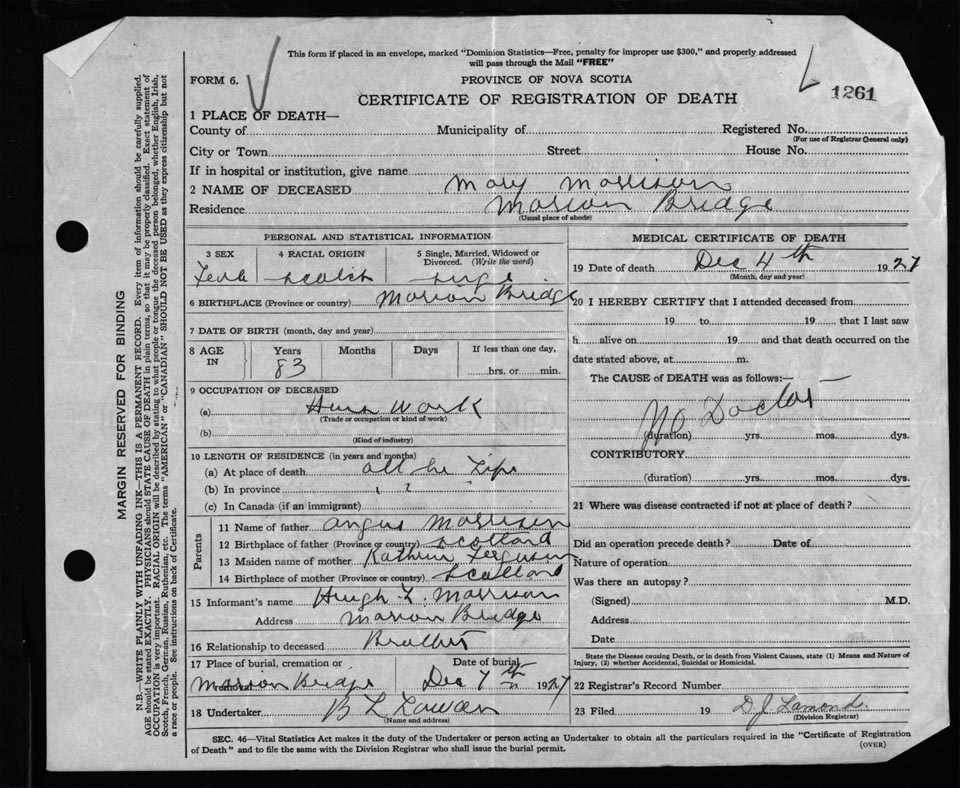 This form if placed in an envelope, marked "Dominion Statistics—Free, penalty for improper use $300," and properly addressed
will pass through the Mail "FREE"
FORM 6.
PROVINCE OF NOVA SCOTIA
1261
CERTIFICATE OF REGISTRATION OF DEATH
1 PLACE OF DEATH—
County of Municipality of Registered No.
(For use of Registrar General only)
City or Town Street House No.
If in hospital or institution, give name
2 NAME OF DECEASED Mary Morrison
Residence Marion Bridge
(Usual place of abode)
PERSONAL AND STATISTICAL INFORMATION
3 SEX 4 RACIAL ORIGIN 5 Single, Married, Widowed or
Divorced. (Write the word)
Scotch
6 BIRTHPLACE (Province or country) Marion Bridge
7 DATE OF BIRTH (month, day and year)
8 AGE IN Years Months Days If less than one day,
83 hrs. or min.
9 OCCUPATION OF DECEASED
(a) Work
(Trade or occupation or kind of work)
(b)
(Kind of industry)
10 LENGTH OF RESIDENCE (in years and months)
(a) At place of death all he Life
(b) In province
(c) In Canada (if an immigrant)
Parents
11 Name of father Angus Morrison
12 Birthplace of father (Province or country) Scotland
13 Maiden name of mother Ferguson
14 Birthplace of mother (Province or country) Scotland
15 Informant's name Hugh L. Morrison
Address Marion Bridge
16 Relationship to deceased Brother
17 Place of burial, cremation or removal Date of burial
Marion Bridge Dec 7th 1927
18 Undertaker B L
(Name and address)
MEDICAL CERTIFICATE OF DEATH
19 Date of death Dec 4th 1927
(Month, day and year)
20 I HEREBY CERTIFY that I attended deceased from
19 to 19 that I last saw
h alive on 19 and that death occurred on the
date stated above, at m.
The CAUSE of DEATH was as follows:—
No Doctor
(duration) yrs. mos. dys.
CONTRIBUTORY
(duration) yrs. mos. dys.
21 Where was disease contracted if not at place of death?
Did an operation precede death? Date of
Nature of operation
Was there an autopsy?
(Signed) M.D.
Address
Date
State the Disease causing Death, or in death from Violent Causes, state (1) Means and Nature of
Injury, (2) whether Accidental, Suicidal or Homicidal.
22 Registrar's Record Number
23 Filed 19 D. J. Lamond.
(Division Registrar)
SEC. 46—Vital Statistics Act makes it the duty of the Undertaker or person acting as Undertaker to obtain all the particulars required in the "Certificate of Registration
of Death" and to file the same with the Division Registrar who shall issue the burial permit.
(OVER)
MARGIN RESERVED FOR BINDING
N.B.—WRITE PLAINLY WITH UNFADING INK—THIS IS A PERMANENT RECORD. Every item of information should be carefully supplied.
AGE should be stated EXACTLY. PHYSICIANS should STATE CAUSE OF DEATH in plain terms, so that it may be properly classified. Exact statement of
OCCUPATION is very important. RACIAL ORIGIN will be described by stating to what people or tongue the deceased person belonged, whether English, Irish,
Scotch, French, German, Russian, Ruthenian, etc. The terms "AMERICAN" or "CANADIAN" SHOULD NOT BE USED as they express citizenship but not
a race or people. See instructions on back of Certificate.